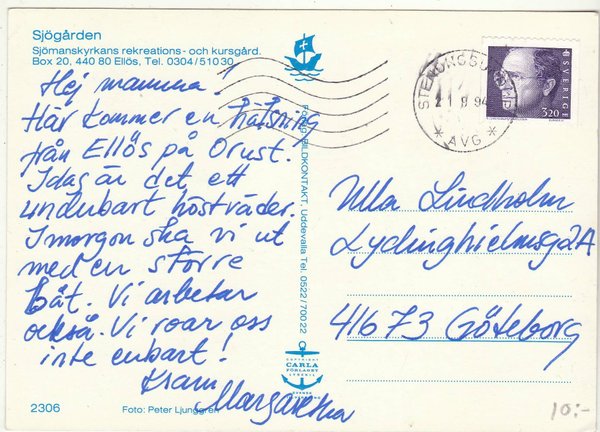 Sjögården
Sjömanskyrkans rekreations- och kursgård.
Box 20, 440 80 Ellös, Tel. 0304/510 30
Hej mamma!
Här kommer en hälsning
från Ellös på Orust.
Idag är det ett
underbart höstväder.
I morgon ska vi ut
med en större
båt. Vi arbetar
också. Vi roar oss
inte enbart!
Kram
Margaretha
2306
Foto: Peter Ljunggren
BILDKONTAKT, Uddevalla Tel. 0522/700 22
COPYRIGHT
CARLA
FÖRLAGET
LYSEKIL
STENUNGSUND
21 9 94
* AVG *
SVERIGE
3,20
Ulla Lindholm
Lydinghielmsg 2A
416 73 Göteborg
10:-